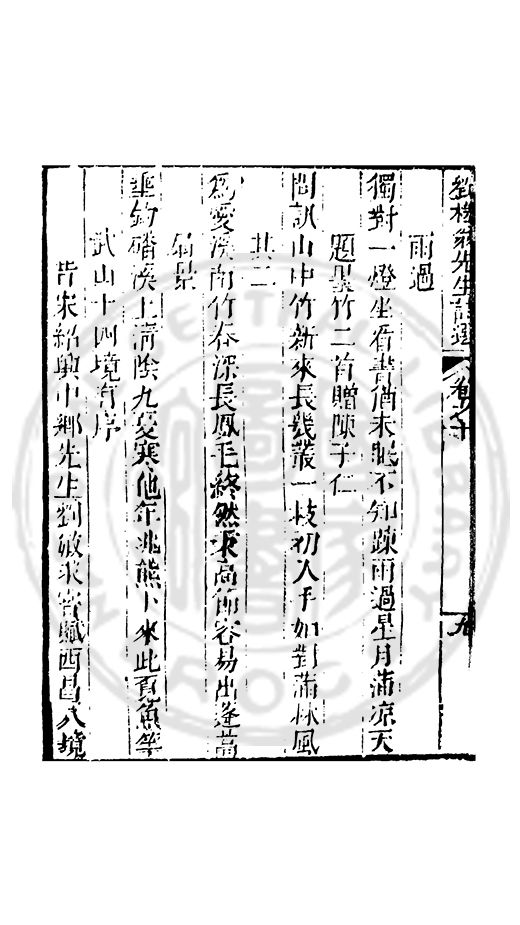 劉槎翁先生詩選 卷之十 九
雨過
獨對一燈坐看書猶未眠不知踈雨過星月滿凉天
題墨竹二首贈陳子仁
問訊山中竹新來長幾叢一枝初入手如對滿林風
其二
爲愛溪南竹春深長鳳毛終然求高節容易出蓬蒿
垂釣磻溪上清陰九夏寒他年兆熊卜來此覓魚竿
武山十四境有序
昔宋紹興中鄉先生劉敏求嘗賦西昌八境